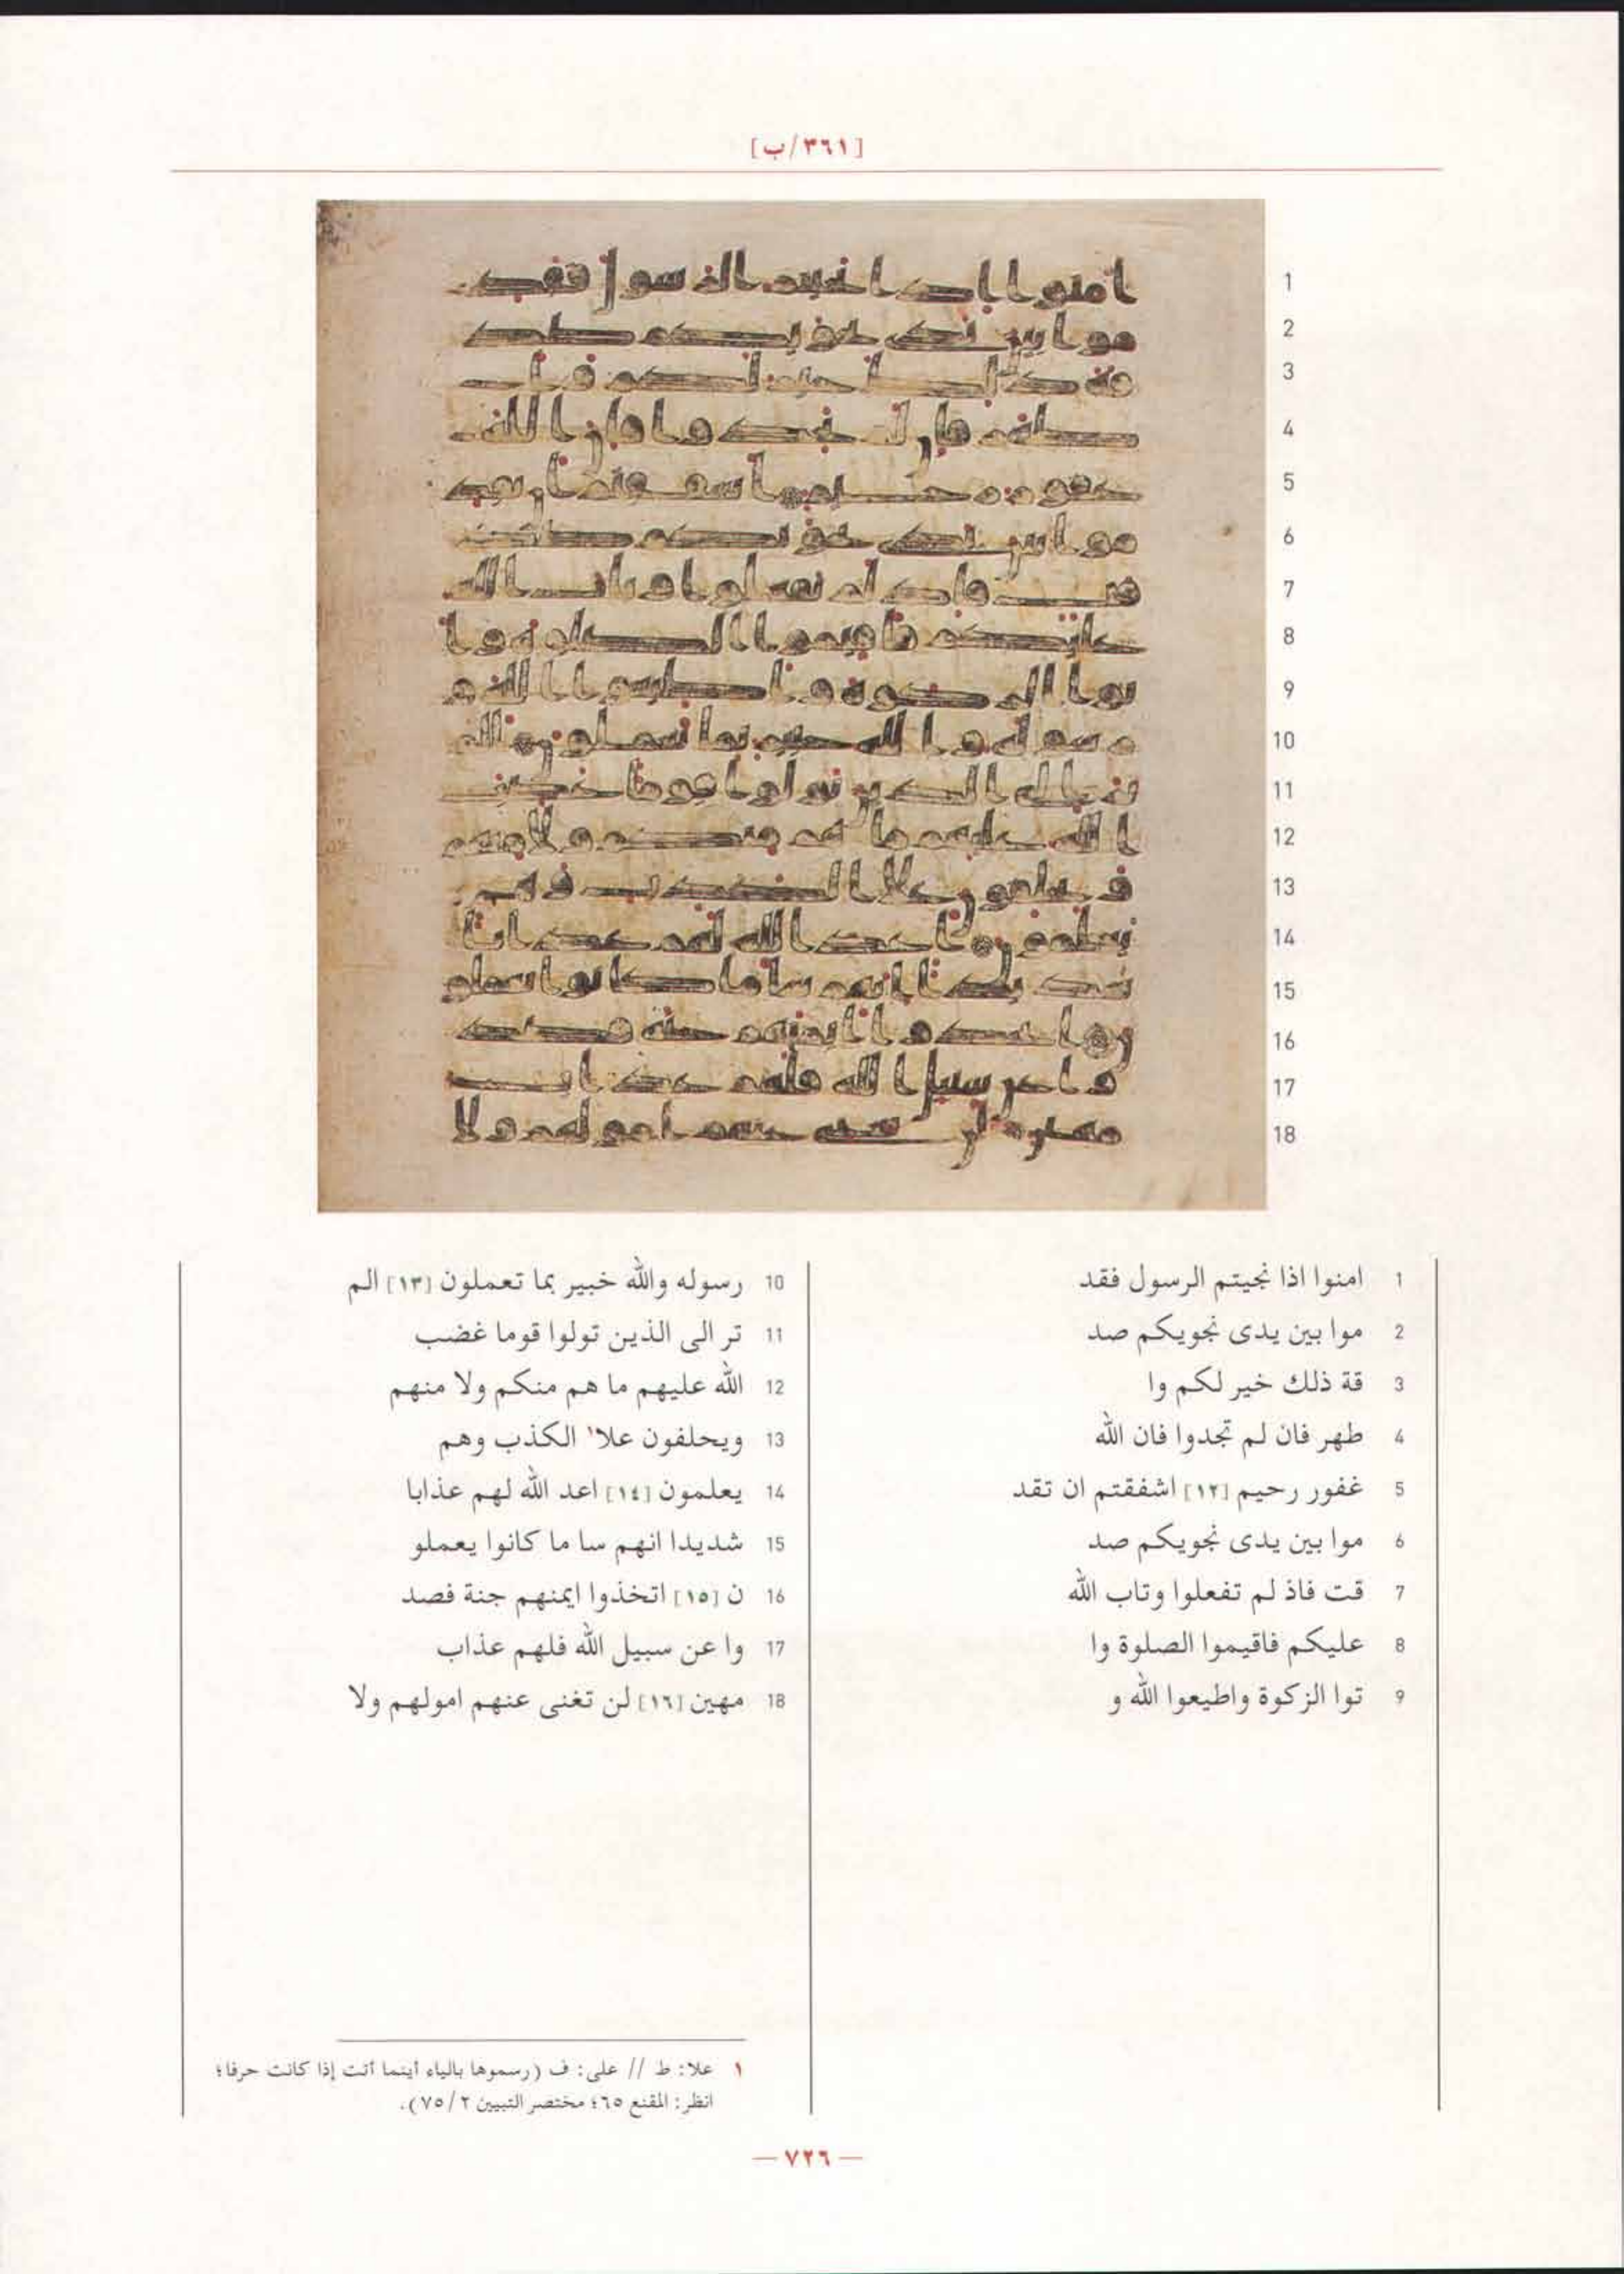 [٣٦١/ب]
1 امنوا اذا نجيتم الرسول فقد
2 موا بين يدى نجويكم صد
3 قة ذلك خير لكم وا
4 طهر فان لم تجدوا فان الله
5 غفور رحيم [١٢] اشفقتم ان تقد
6 موا بين يدى نجويكم صد
7 قت فاذ لم تفعلوا وتاب الله
8 عليكم فاقيموا الصلوة وا
9 توا الزكوة واطيعوا الله و
10 رسوله والله خبير بما تعملون [١٣] الم
11 تر الى الذين تولوا قوما غضب
12 الله عليهم ما هم منكم ولا منهم
13 ويحلفون علا١ الكذب وهم
14 يعلمون [١٤] اعد الله لهم عذابا
15 شديدا انهم سا ما كانوا يعملو
16 ن [١٥] اتخذوا ايمنهم جنة فصد
17 وا عن سبيل الله فلهم عذاب
18 مهين [١٦] لن تغنى عنهم امولهم ولا
١ علا: ط // على: ف (رسموها بالياء أينما أتت إذا كانت حرفا؛
انظر: المقنع ٦٥؛ مختصر التبيين ٢/ ٧٥).
— ٧٢٦ —